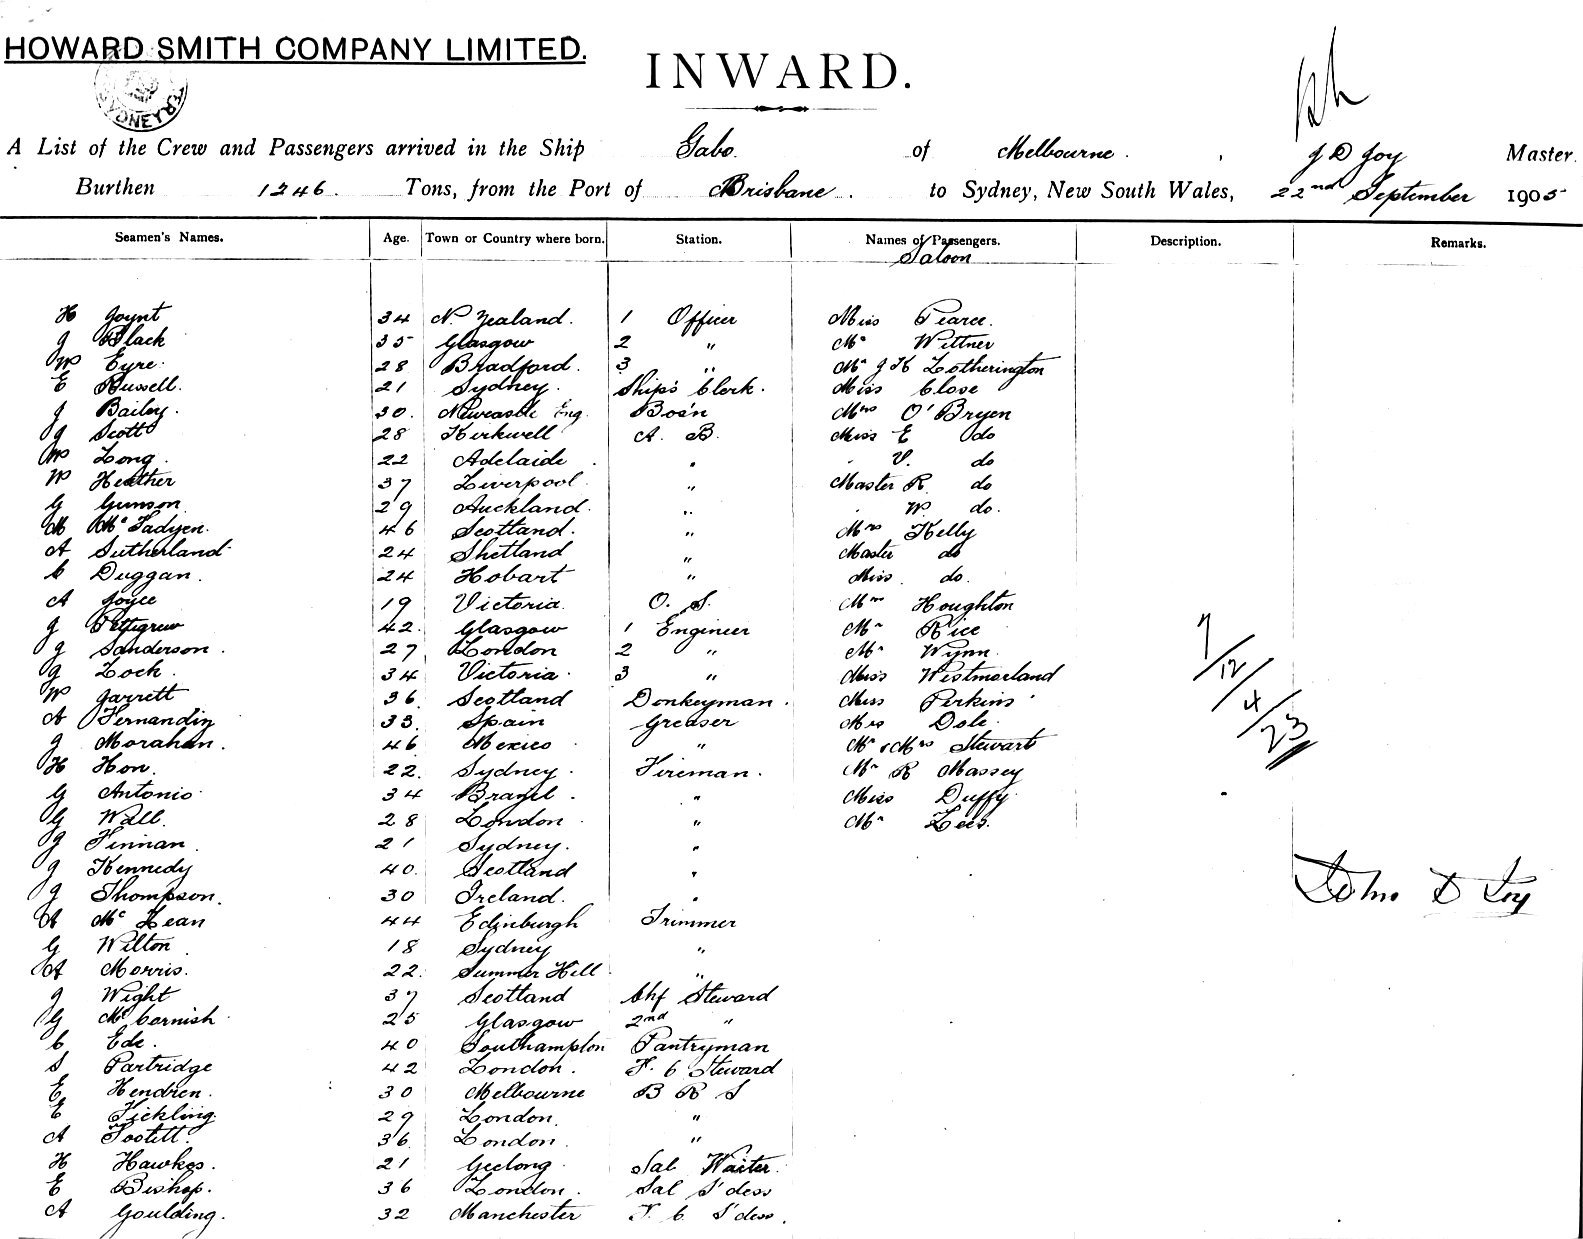 HOWARD SMITH COMPANY LIMITED.
INWARD.
A List of the Crew and Passengers arrived in the Ship Gabo. of Melbourne. J D Joy Master.
Burthen 1246. Tons, from the Port of Brisbane. to Sydney, New South Wales, 22nd September 1905
Seamen's Names. Age. Town or Country where born. Station. Names of Passengers. Description. Remarks.
Saloon
H Joynt 34 N. Zealand. 1 Officer Miss Pearce.
J Black 35 Glasgow 2 " Mr Wittner
W Eyre. 28 Bradford. 3 " Mr J K Lotherington
E Russell. 21 Sydney. Ship's Clerk. Miss Close
J Bailey. 30. Newcastle Eng. Bos'n Mrs O'Bryen
J Scott 28 Kirkwell A. B. Miss E do
W Long. 22 Adelaide " " V. do
W Heather 37 Liverpool " Master R. do
G Gunson 29 Auckland. " " W. do.
M McFadyen. 46 Scotland. " Mrs Kelly
A Sutherland 24 Shetland " Master do
C Duggan. 24 Hobart " Miss. do.
A Joyce 19 Victoria. O. S. Mrs Houghton
J Pettigrew 42. Glasgow 1 Engineer Mr Rice
J Sanderson. 27 London 2 " Mr Wynn.
J Lock. 34 Victoria. 3 " Miss Westmorland
W Garrett 36 Scotland Donkeyman. Miss Perkins
A Fernandin 33. Spain Greaser Mrs Dole.
J Morahan. 46 Mexico " Mr & Mrs Stewart
H Hon. 22. Sydney. Fireman. Mr R Massey
G Antonio 34 Brazil. " Miss Duffy
G Wall. 28 London " Mr Lees.
J Finnan 21 Sydney. "
J Kennedy 40. Scotland "
J Thompson. 30 Ireland. "
A McLean 44 Edinburgh Trimmer
G Wilton 18 Sydney "
A Morris. 22. Summer Hill "
J Wight 37 Scotland Chf Steward
G McCornish 25 Glasgow 2nd "
C Ede. 40 Southampton Pantryman
S Partridge 42 London. F. C Steward
E Hendren. 30 Melbourne B R S
E Tickling 29 London. "
A Tootell. 36 London. "
H Hawkes. 21 Geelong. Sal Waiter.
E Bishop. 36 London. Sal S'dess
A Goulding. 32 Manchester F. C. S'dess.
7/12/4/23
John D Joy